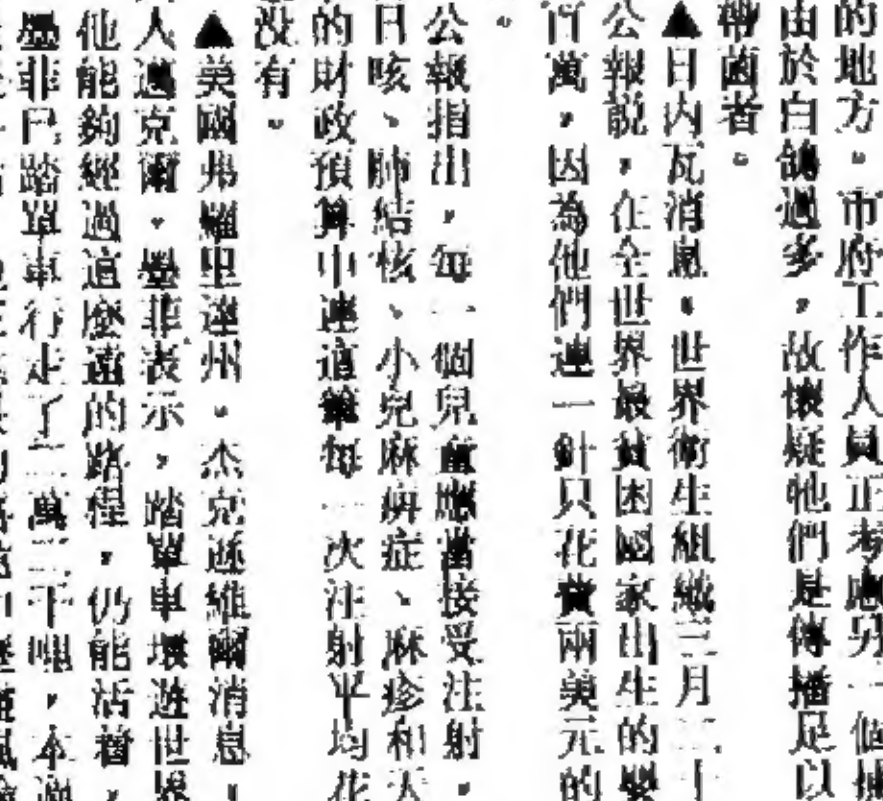 的地方。市府工作人員正考慮另一個
由於白鴿過多，故懷疑牠們是傳播足以
帶菌者。
▲日内瓦消息。世界衛生組織三月二十
公報説，在全世界最貧困國家出生的嬰
百萬，因為他們連一針只花費兩美元的
。
公報指出，每一個兒童應當接受注射。
日咳、肺結核、小兒麻痹症、麻疹和天
的財政預算中連這筆每一次注射平均花
没有。
▲美國弗羅里達州。杰克遜維爾消息，
人邁克爾。墨菲表示，踏單車環遊世界
他能夠經過這麼遠的路程，仍能活着，
墨菲已踏單車行走了二萬三千哩，本